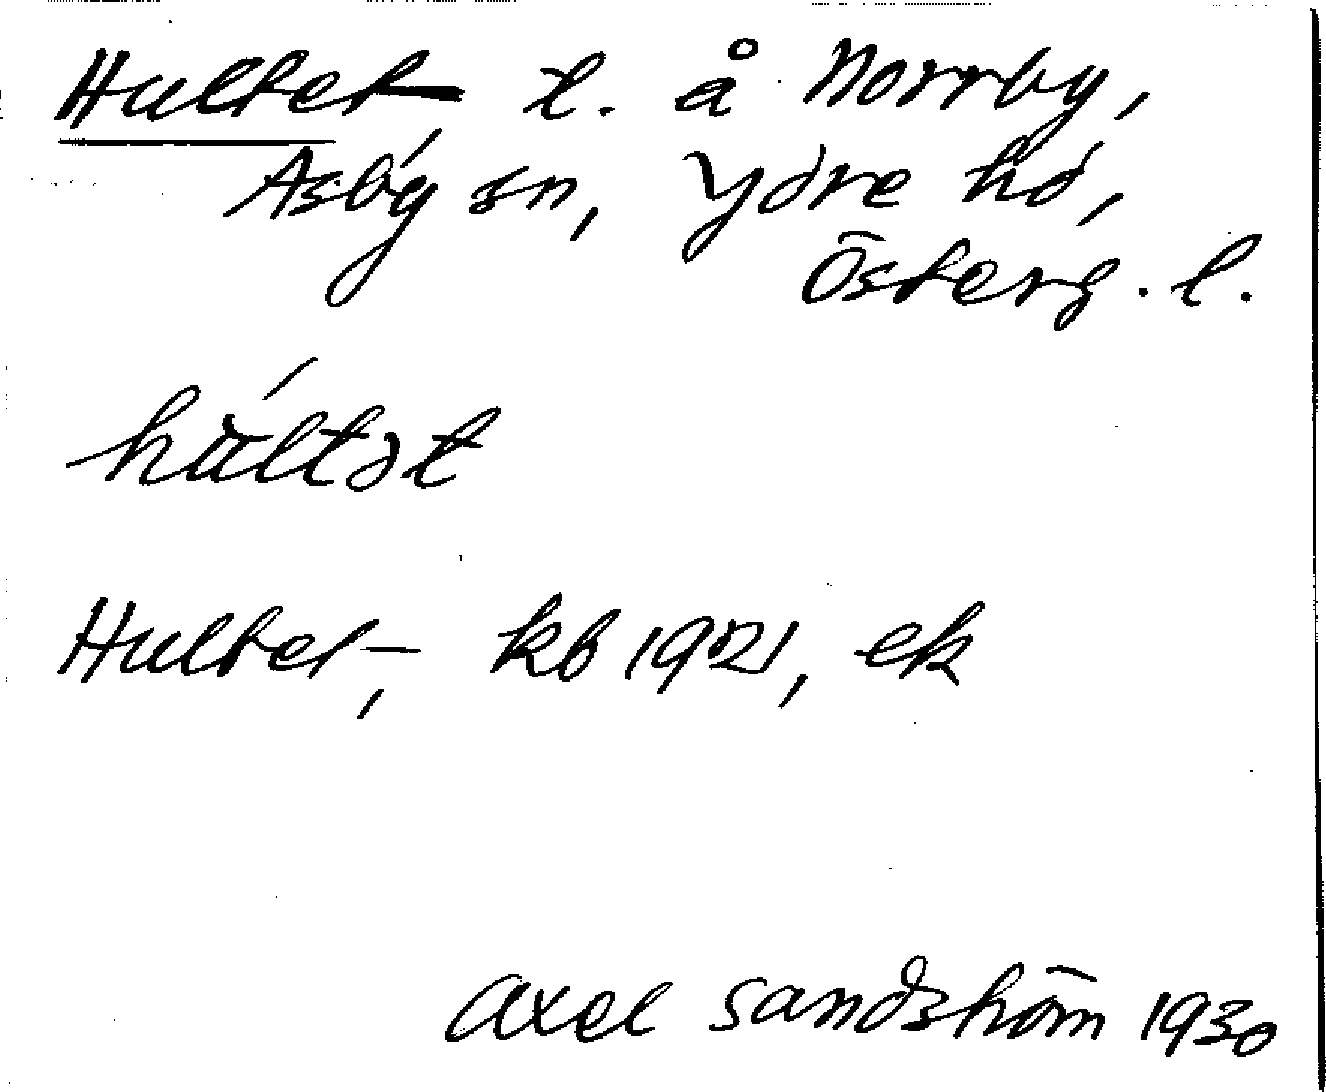 Hultet, t. å Norrby,
Asby sn, Ydre hd,
Österg. l.
húltət
Hultet, kb 1921, ek
Axel Sandström 1930